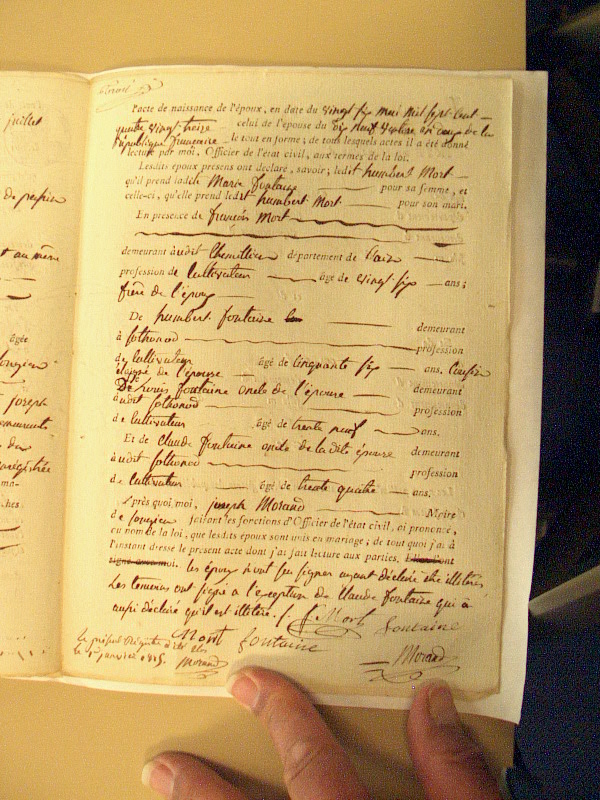 juillet
de profession
et au même
âgée
joseph
enregistrée
ma-
ches
l'acte de naissance de l'époux, en date du vingt six mai mil sept cent
quatre vingt treize celui de l'épouse du dix huit
République française le tout en forme; de tous lesquels actes il a été donné
lecture par moi, Officier de l'état civil, aux termes de la loi.
Lesdits époux présens ont déclaré, savoir; ledit humbert Mort
qu'il prend ladite Marie fontaine pour sa femme, et
celle-ci, qu'elle prend ledit humbert Mort pour son mari.
En présence de françois Mort
demeurant audit Chemillieu département de l'ain
profession de Cultivateur âgé de vingt six ans;
frère de l'époux
De humbert fontaine demeurant
à fothonod profession
de Cultivateur âgé de Cinquante six ans. Cousin
éloigné de l'épouse
De Louis fontaine oncle de l'épouse demeurant
audit fothonod profession
de Cultivateur âgé de trente neuf ans.
Et de Claude fontaine oncle de la dite épouse demeurant
audit fothonod profession
de Cultivateur âgé de trente quatre ans.
Après quoi moi, joseph Morand Maire
de songieu faisant les fonctions d'Officier de l'état civil, ai prononcé,
au nom de la loi, que lesdits époux sont unis en mariage; de tout quoi j'ai à
l'instant dressé le présent acte dont j'ai fait lecture aux parties.
les époux n'ont su signer ayant déclaré être illitérés
Les temoins ont signé à l'exception de Claude fontaine qui à
aussi déclaré qu'il est illitéré./.
f. Mort fontaine
Mort fontaine
Le présent Régistre
le 1er janvier 1815 Morand Morand